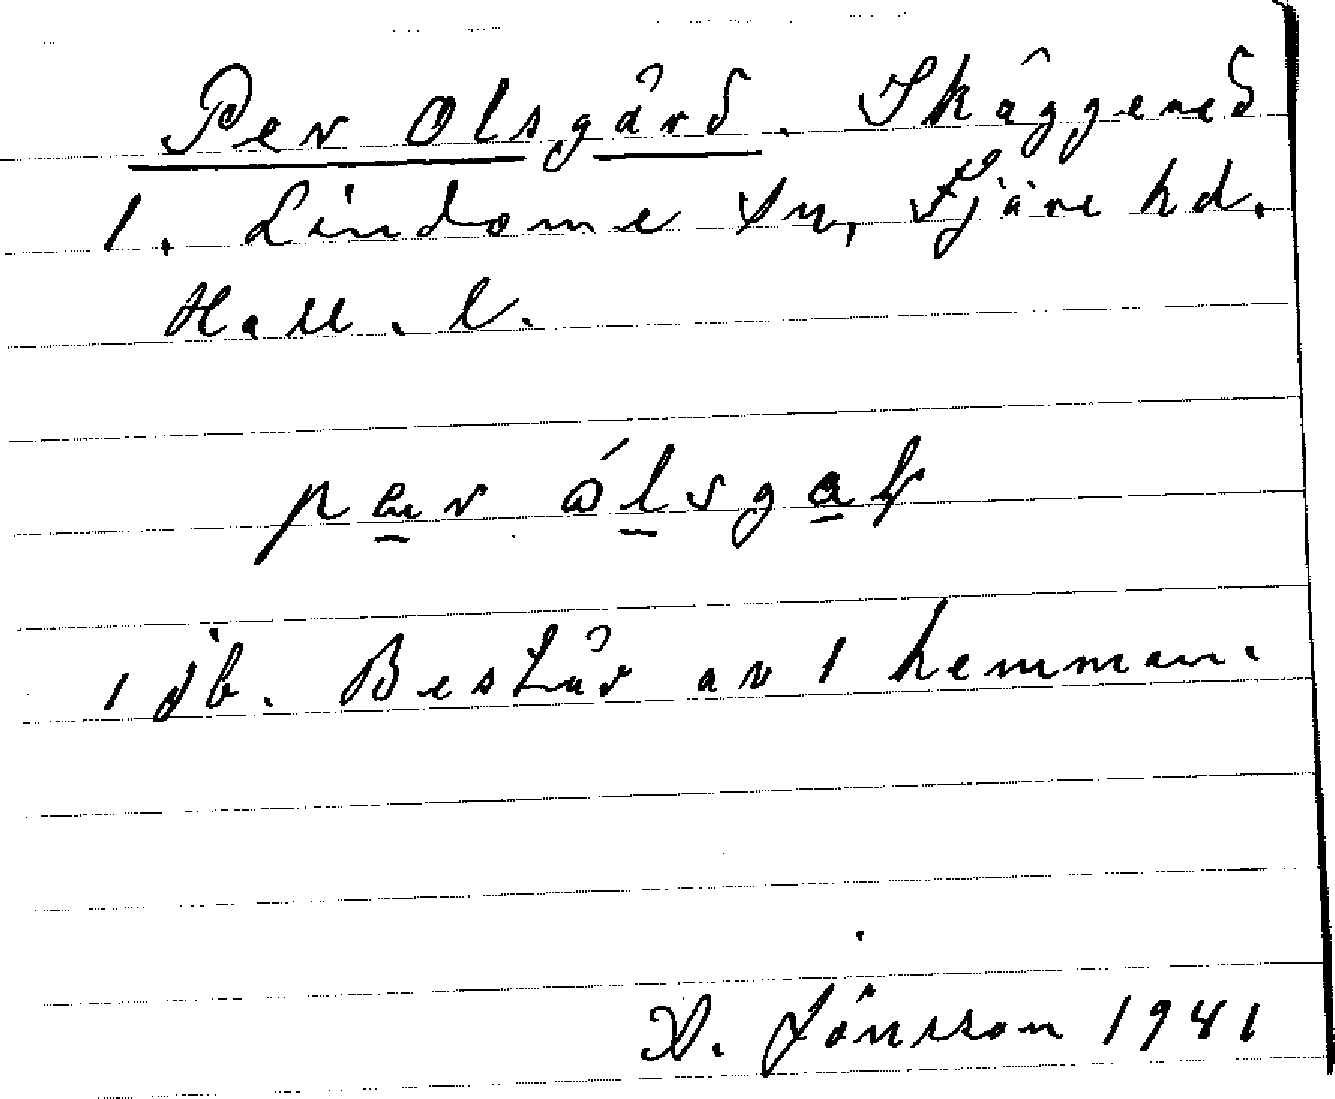 Per Olsgård. Skäggered
1. Lindome sn, Fjäre hd.
Hall. l.
1 jb. Består av 1 hemman.
D. Jönsson 1941